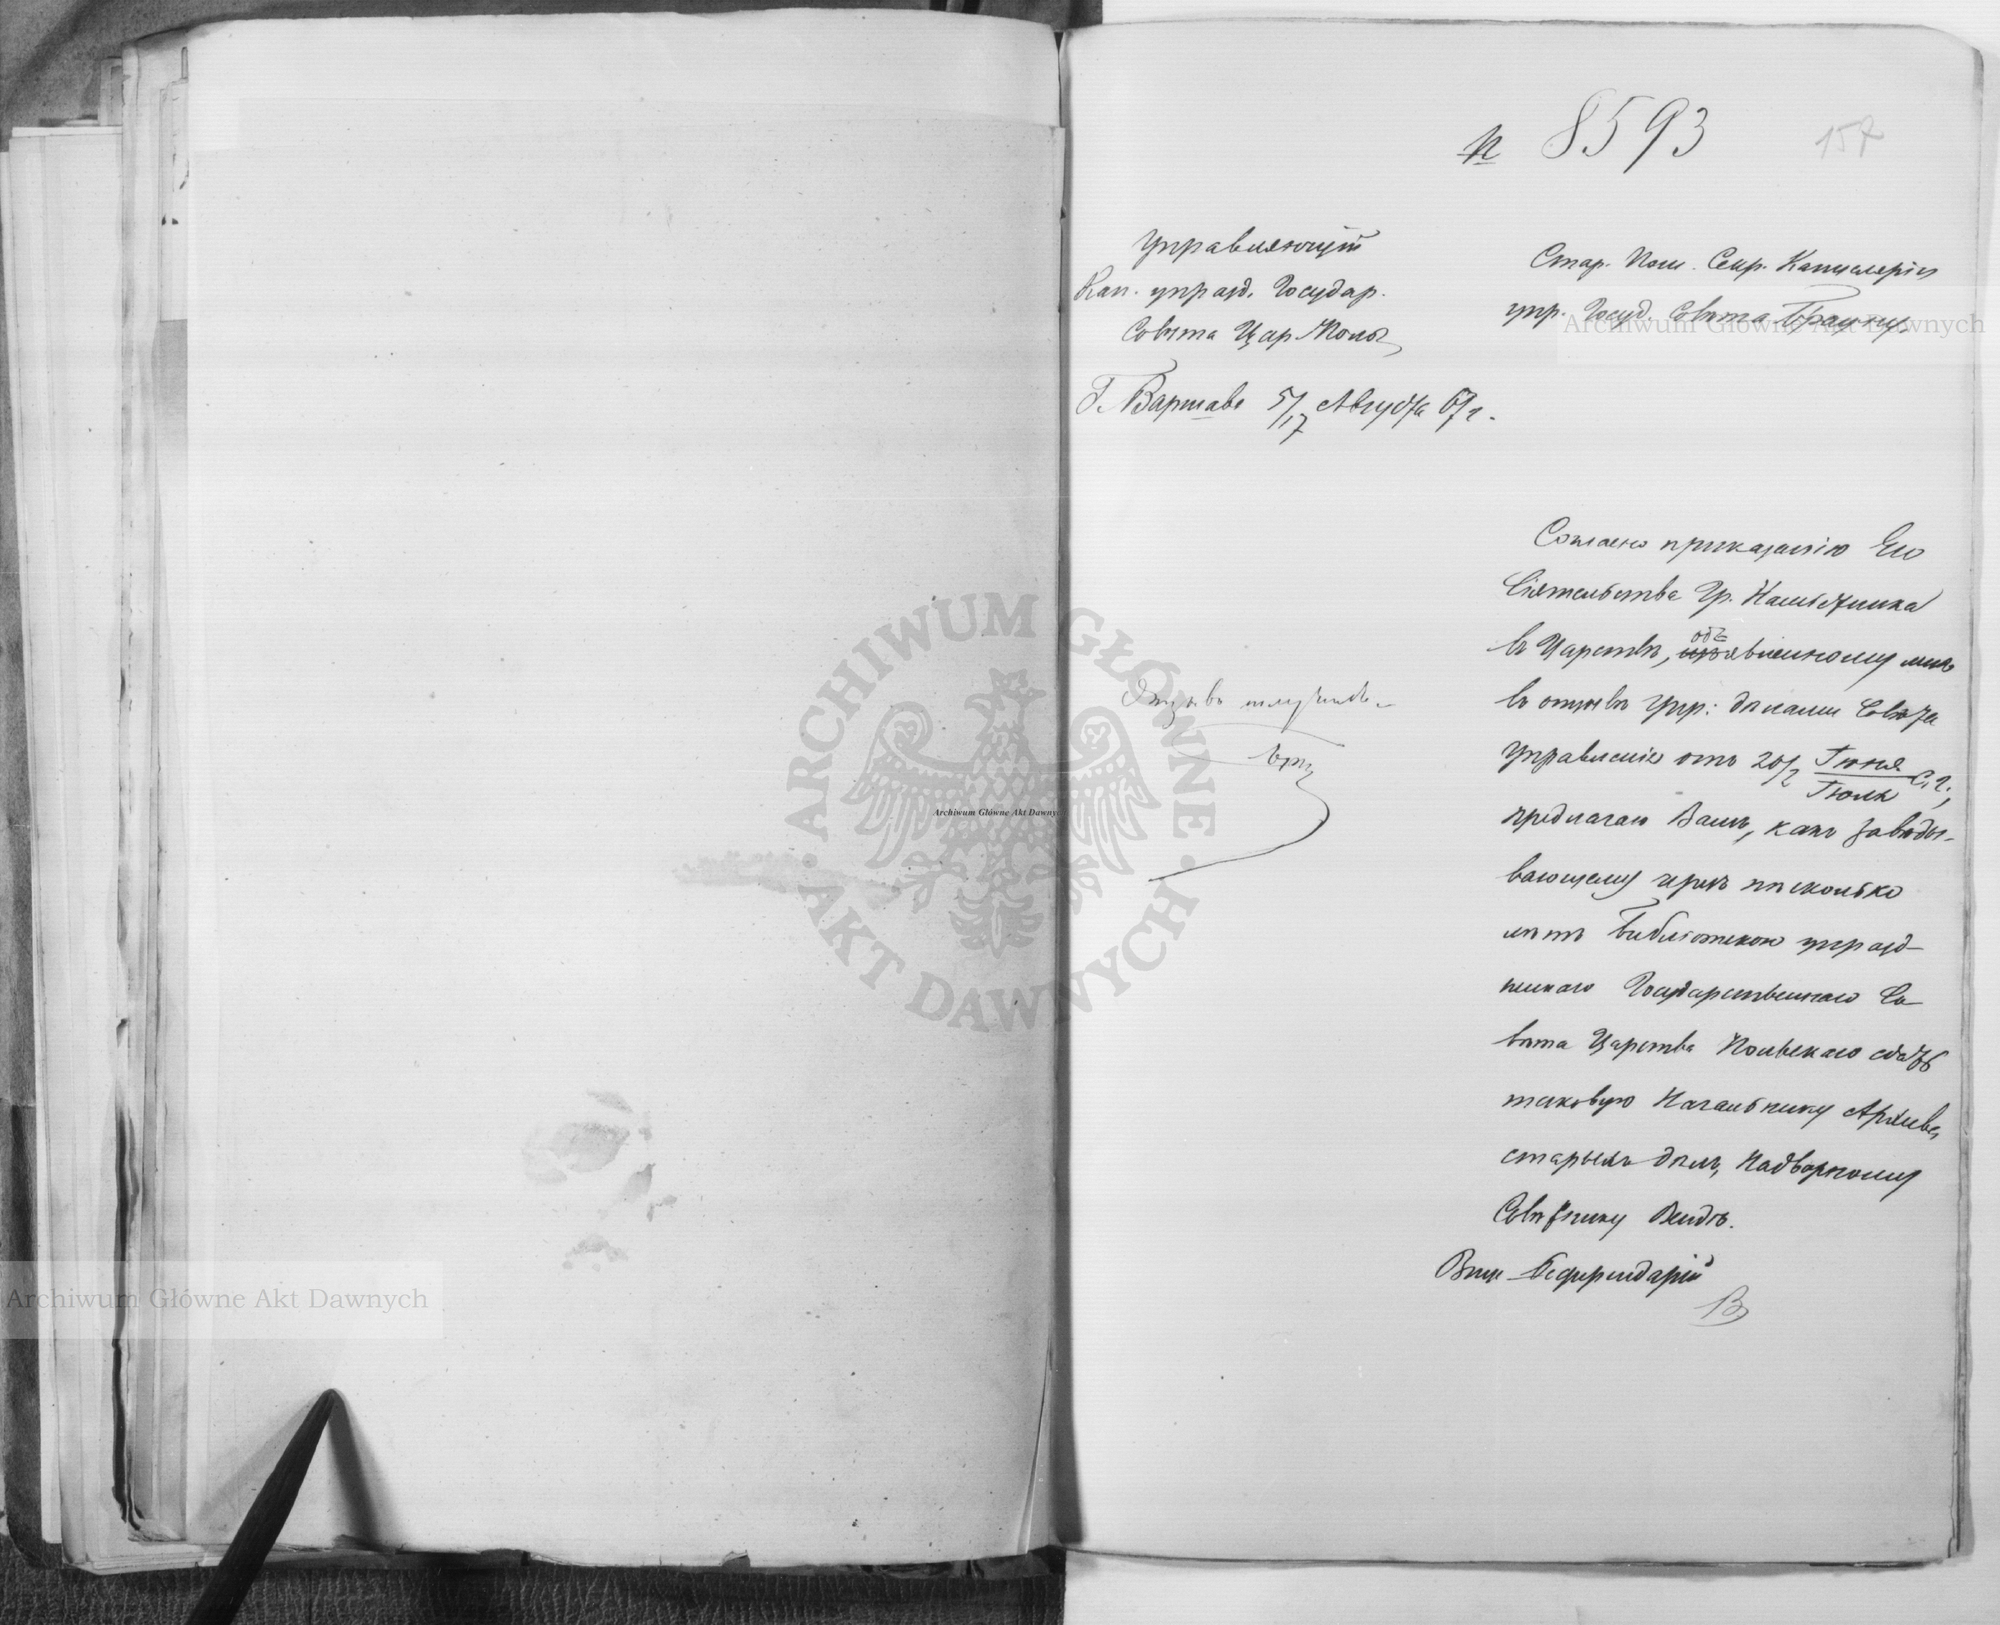 № 8593
157
Управляющій
Кан. упразд. Государ.
Совѣта Цар. Польс.
Г. Варшава 5/17 Августа 67 г.
Стар. Пом. Секр. Канцеляріи
упр. Госуд. Совѣта Брауну.
Согласно приказанію Его
Сіятельства Гр. Намѣстника
въ Царствѣ, объявленному мнѣ
въ отзывѣ Упр: дѣлами Совѣта
Управленія отъ 20/2 Іюня/Іюля с. г.,
предлагаю Вамъ, какъ завѣды-
вающему чрезъ нѣсколько
лѣтъ Библіотекою упразд-
неннаго Государственнаго Со-
вѣта Царства Польскаго сдать
таковую Начальнику Архива
старыхъ дѣлъ, Надворному
Совѣтнику Вейдѣ.
Вице-Референдарій
В
Archiwum Główne Akt Dawnych
Archiwum Główne Akt Dawnych
Archiwum Główne Akt Dawnych
ARCHIWUM GŁÓWNE AKT DAWNYCH